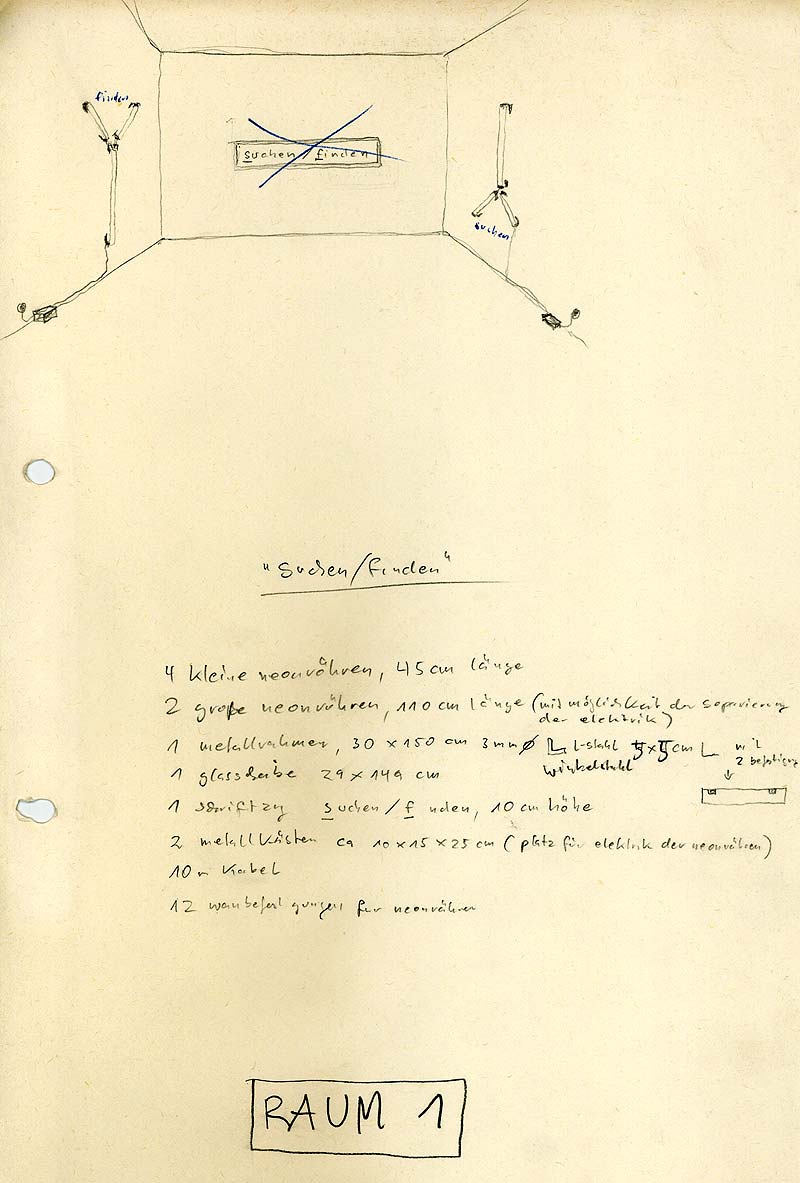 finden
suchen / finden
suchen
"suchen/finden"
4 kleine neonröhren, 45 cm länge
2 große neonröhren, 110 cm länge (mit möglichkeit der separierung
der elektrik)
1 metallrahmen, 30 x 150 cm 3mm ∅ L-stahl 5x5 cm mit
winkelstahl 2 befestigung
1 glasscheibe 29 x 149 cm
1 schriftzug suchen / f nden, 10 cm höhe
2 metallkästen ca 10 x 15 x 25 cm (platz für elektrik der neonröhren)
10 m kabel
12 für neonröhren
RAUM 1